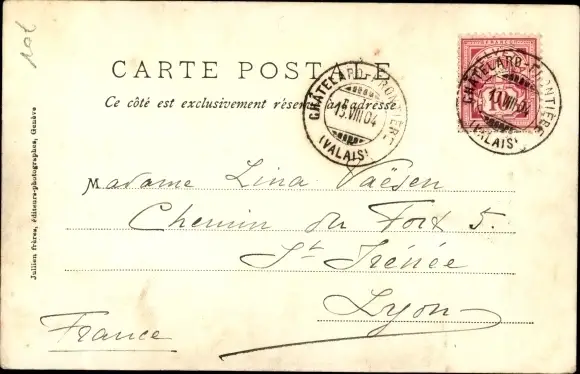 102
CARTE POSTALE
Ce côté est exclusivement réservé à l'adresse
CHÂTELARD-FRONTIÈRE
15.VIII.04
(VALAIS)
FRANCO
CHÂTELARD-FRONTIÈRE
VIII.04
(VALAIS)
Madame Lina
Chemin du Fort 5.
St Irénée
Lyon
France
Jullien frères, éditeurs-photographes, Genève